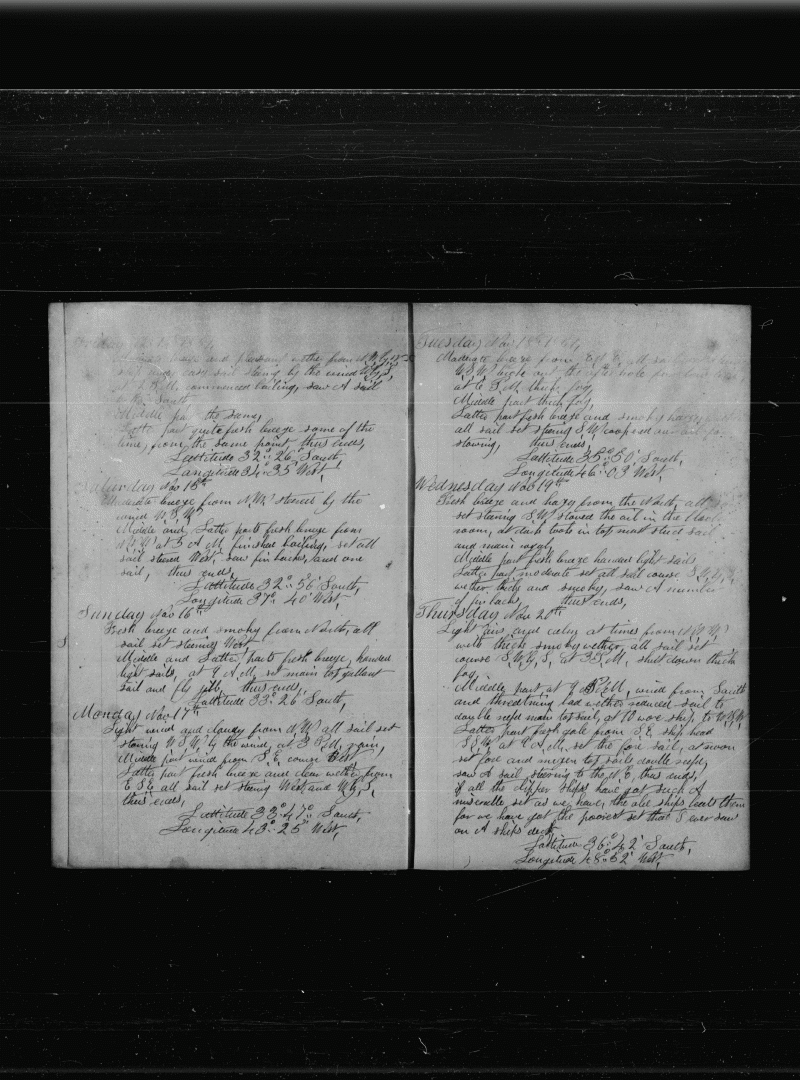 breeze and pleasant wether from
easy sail steering by the wind
commenced boiling, saw A sail
to the South
Middle part the same,
Latter part quite fresh breeze some of the
time, from the same point thus ends,
Lattitude 32° 26' South,
Longitude 34° 35' West,
Saturday Nov 15th
Moderate breeze from N.W. steered by the
wind W.S.W.
Middle and Latter parts fresh breeze from
at 5 A M finished boiling, set all
sail steered West, saw finbacks, and one
sail, thus ends,
Lattitude 32° 56' South,
Longitude 37° 40' West,
Sunday Nov 16th
Fresh breeze and smoky from North, all
sail set steering West,
Middle and Latter parts fresh breeze, handed
light sails, at 9 A M, set main top gallant
sail and fly jibb, thus ends,
Lattitude 33° 26' South,
Monday Nov 17th
Light wind and cloudy from N.W. all sail set
steering W.S.W. by the wind, at 3 P.M, rain,
Middle part wind from S.E. course West
Latter part fresh breeze and clear wether from
E S E all sail set steering West and W.by.S,
thus ends,
Lattitude 33° 47' South,
Longitude 43° 25' West,
Tuesday Nov 18th
Moderate breeze from all sail
W.S.W. broke out the after hole
at 6 P.M thick fog,
Middle part thick fog,
Latter part fresh breeze and smoky
all sail set steering S.W. coopered our
stowing, thus ends,
Lattitude 35° 50' South,
Longitude 46° 03' West,
Wednesday Nov 19th
Fresh breeze and hazy from the North, all
set steering S.W. stowed the oil in the
room, at dark took in top mast stud sail
and main royal,
Middle part fresh breeze handed light sails
Latter part moderate set all sail course
wether thick and smoky, saw A number
of finbacks, thus ends,
Thursday Nov 20th
Light airs and calm, at times from N.W.
with thick smoky wether, all sail set
course S.W.by.S, at 3 P.M, shut down thick
fog,
Middle part at 9 P.M, wind from South
and threatning bad wether reduced sail to
double reefed main top sail, at 10 wore ship to W.S.W,
Latter part fresh gale from S.E, ship head
S.S.W. at 9 A.M, set the fore sail, at noon
set fore and mizzen top sails double reefed,
saw A sail, steering to the N.E, thus ends,
if all the clipper ships have got such A
miserable set as we have, the old ships beats them
for we have got the poorest set that I ever saw
on A ships deck,
Lattitude 36° 42' South,
Longitude 48° 52' West,